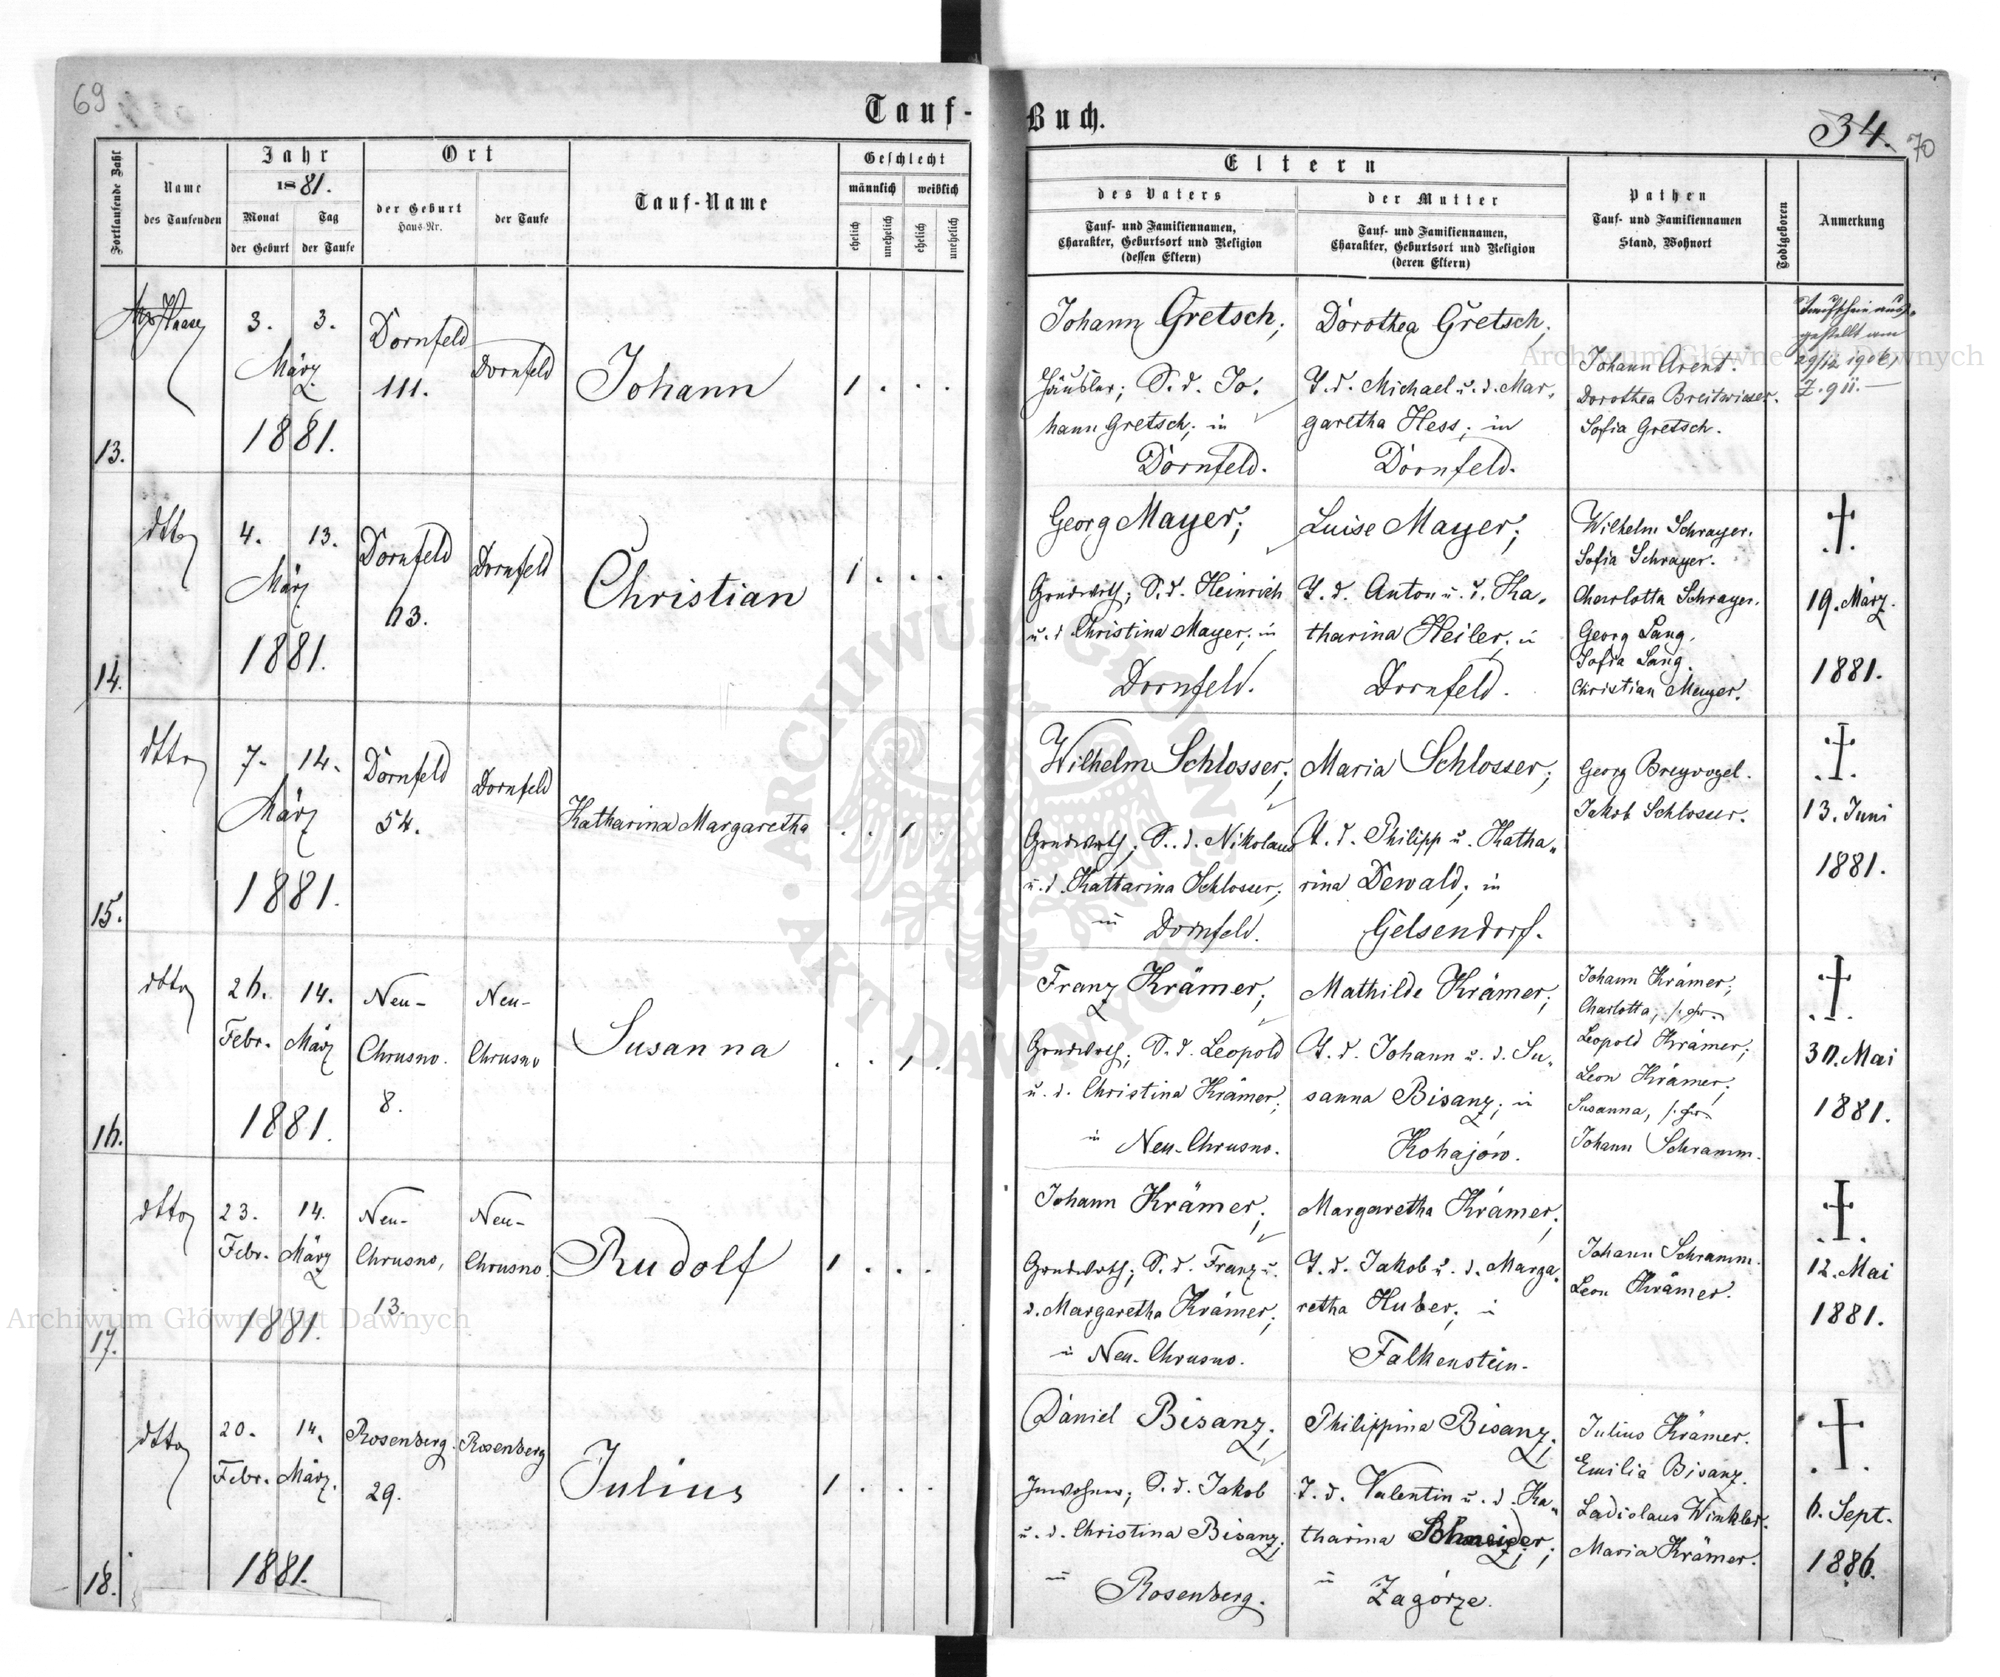 69
Tauf-
Buch.
34.
70
Fortlaufende Zahl
Name
des Taufenden
Jahr
1881.
Monat
der Geburt
Tag
der Taufe
Ort
der Geburt
Haus-Nr.
der Taufe
Tauf-Name
Geschlecht
männlich
weiblich
ehelich
unehelich
ehelich
unehelich
Eltern
des Vaters
Tauf- und Familiennamen,
Charakter, Geburtsort und Religion
(dessen Eltern)
der Mutter
Tauf- und Familiennamen,
Charakter, Geburtsort und Religion
(deren Eltern)
Pathen
Tauf- und Familiennamen
Stand, Wohnort
Todtgeboren
Anmerkung
13.
3. 3.
März
1881.
Dornfeld
111.
Dornfeld
Johann
1 . . .
Johann Gretsch;
Häusler; S. d. Jo-
hann Gretsch; in
Dornfeld.
Dorothea Gretsch;
T. d. Michael u. d. Mar-
garetha Hess; in
Dornfeld.
Johann Arend.
Dorothea Breitwieser.
Sofia Gretsch.
Taufschein aus-
gestellt am
29/12 1906,
Z. 911.—
14.
dtto
4. 13.
März
1881.
Dornfeld
63.
Dornfeld
Christian
1 . . .
Georg Mayer;
Grundwrth; S. d. Heinrich
u. d. Christina Mayer; in
Dornfeld.
Luise Mayer;
T. d. Anton u. d. Ka-
tharina Heiler; in
Dornfeld.
Wilhelm Schrayer.
Sofia Schrayer.
Charlotta Schrayer.
Georg Lang.
Sofia Lang.
Christian Mayer.
19. März
1881.
15.
dtto
7. 14.
März
1881.
Dornfeld
54.
Dornfeld
Katharina Margaretha
. . 1 .
Wilhelm Schlosser;
Grundwrth; S. d. Nikolaus
u. d. Katharina Schlosser;
in Dornfeld.
Maria Schlosser;
T. d. Philipp u. Katha-
rina Dewald; in
Gelsendorf.
Georg Breyvogel.
Jakob Schlosser.
13. Juni
1881.
16.
dtto
26. 14.
Febr. März
1881.
Neu-
Chrusno.
8.
Neu-
Chrusno
Susanna
. . 1 .
Franz Krämer;
Grundwrth; S. d. Leopold
u. d. Christina Krämer;
in Neu-Chrusno.
Mathilde Krämer;
T. d. Johann u. d. Su-
sanna Bisanz; in
Kohajów.
Johann Krämer;
Charlotta,
Leopold Krämer;
Leon Krämer;
Susanna,
Johann Schramm.
30. Mai
1881.
17.
dtto
23. 14.
Febr. März
1881.
Neu-
Chrusno,
13.
Neu-
Chrusno.
Rudolf
1 . . .
Johann Krämer;
Grundwrth; S. d. Franz u.
d. Margaretha Krämer;
in Neu-Chrusno.
Margaretha Krämer;
T. d. Jakob u. d. Marga-
retha Huber; in
Falkenstein.
Johann Schramm.
Leon Krämer.
12. Mai
1881.
18.
dtto
20. 14.
Febr. März.
1881.
Rosenberg.
29.
Rosenberg
Julius
1 . . .
Daniel Bisanz;
Inwohner; S. d. Jakob
u. d. Christina Bisanz;
in Rosenberg.
Philippina Bisanz;
T. d. Valentin u. d. Ka-
tharina Schneider;
in Zagórze.
Julius Krämer.
Emilia Bisanz.
Ladislaus Winkler.
Maria Krämer.
6. Sept.
1886.
Archiwum Główne Akt Dawnych
Archiwum Główne Akt Dawnych
ARCHIWUM GŁÓWNE AKT DAWNYCH